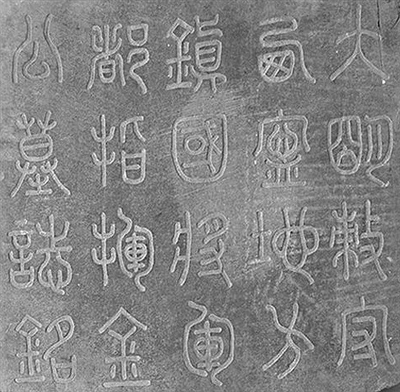 大明敕守
西寧地方
鎮國將軍
都指揮金
公墓誌銘